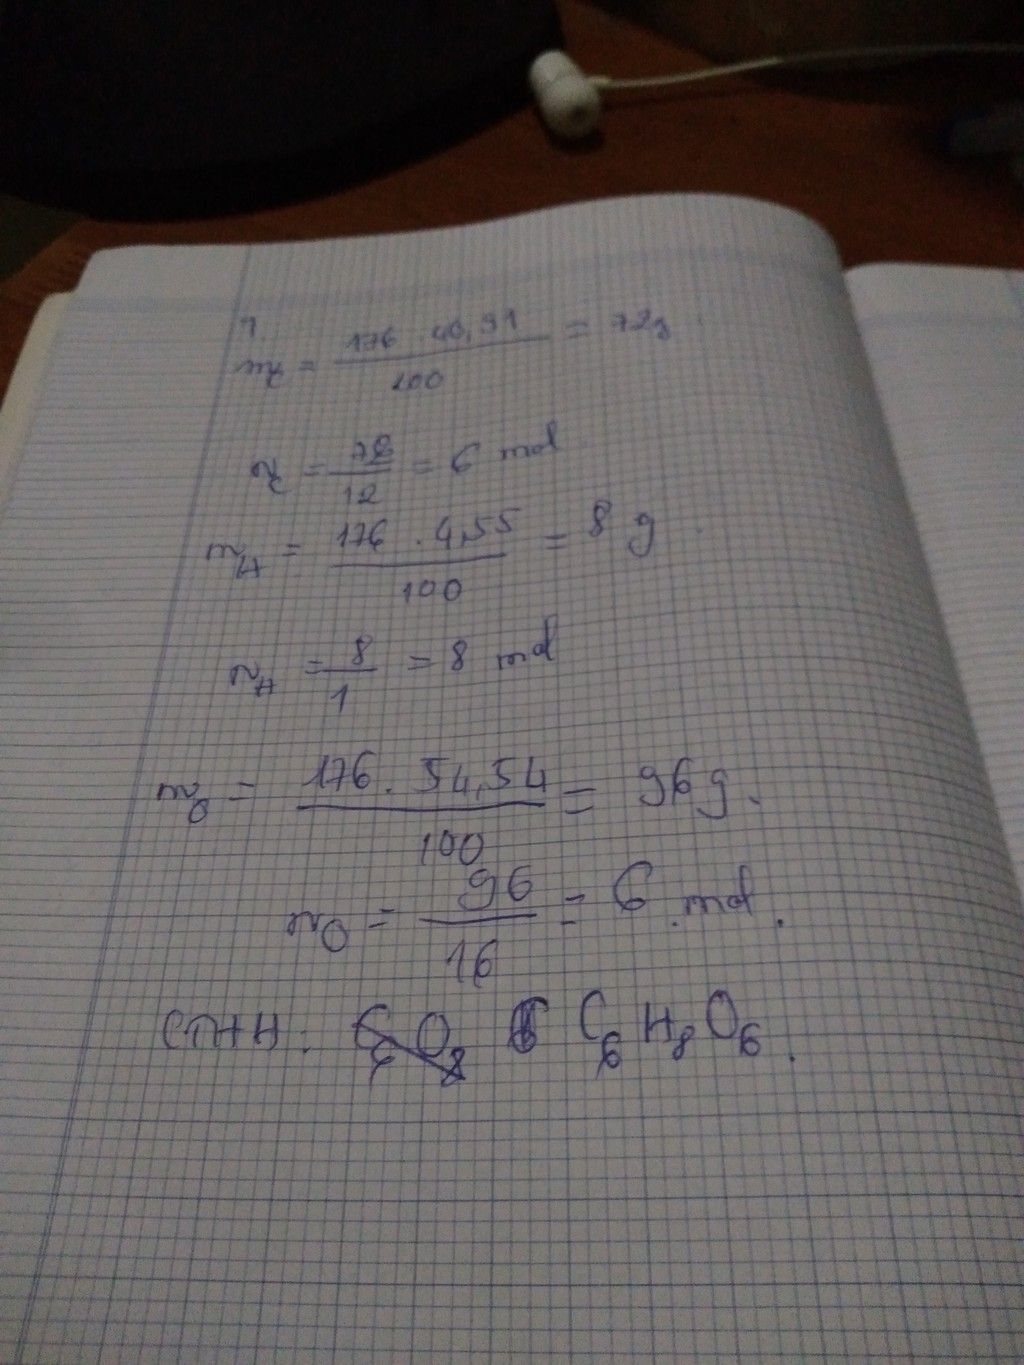 1.
m_C = 176 . 40,91 / 100 = 72g .
n_C = 72 / 12 = 6 mol
m_H = 176 . 4,55 / 100 = 8 g .
n_H = 8 / 1 = 8 mol
m_O = 176 . 54,54 / 100 = 96 g .
n_O = 96 / 16 = 6 mol .
CTHH : C₆H₈O₆ .